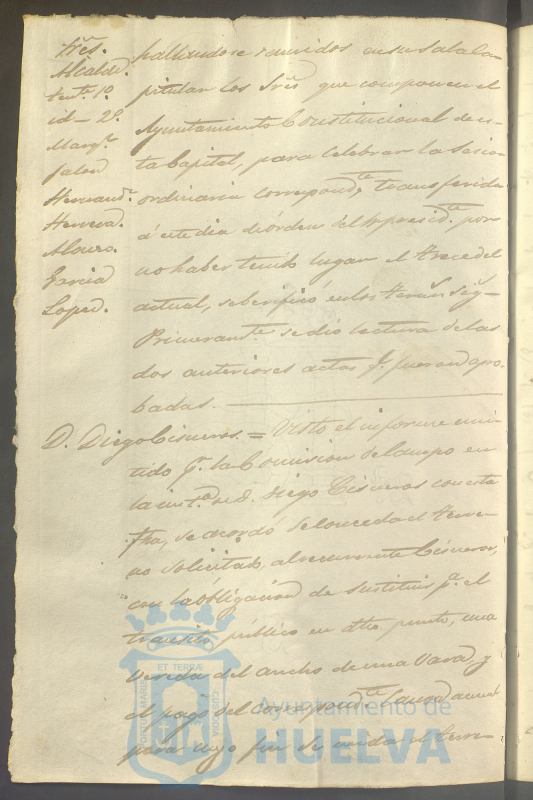 Sres.
Alcalde.
tente. 1º.
id - 2º.
Marqz.
Jalon
Hernandz.
Herrera.
Alonso.
Garcia
Lopez.
hallandose reunidos en su Sala Ca-
pitular los Sres. que componen el
Ayuntamiento Constitucional de es-
ta Capital, para celebrar la Sesion
ordinaria correspondte. transferida
á este dia de órden del Sr. presidte. por
no haber tenido lugar el trece del
actual, se berificó en los
Primeramte. se dió lectura de las
dos anteriores actas q. fueron apro-
badas.
D. Diego Cisneros. = Visto el informe emi-
tido pr. la Comision del campo en
la inscia. de D. Diego Cisneros con esta
fha, se acordó se conceda el terre-
no solicitado, al recurrente Cisneros,
con la obligacion de sustituir pa. el
transito público en dho. punto, una
vereda del ancho de una vara, y
el pago del correspondte. Canon anual
para cuyo fin se mida el terre-
ET TERRÆ
PORTUS MARIS
CUSTODIA
Ayuntamiento de
HUELVA